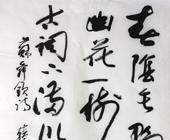 春陰垂野
幽花一樹
古祠下满川
蘇舜欽詩